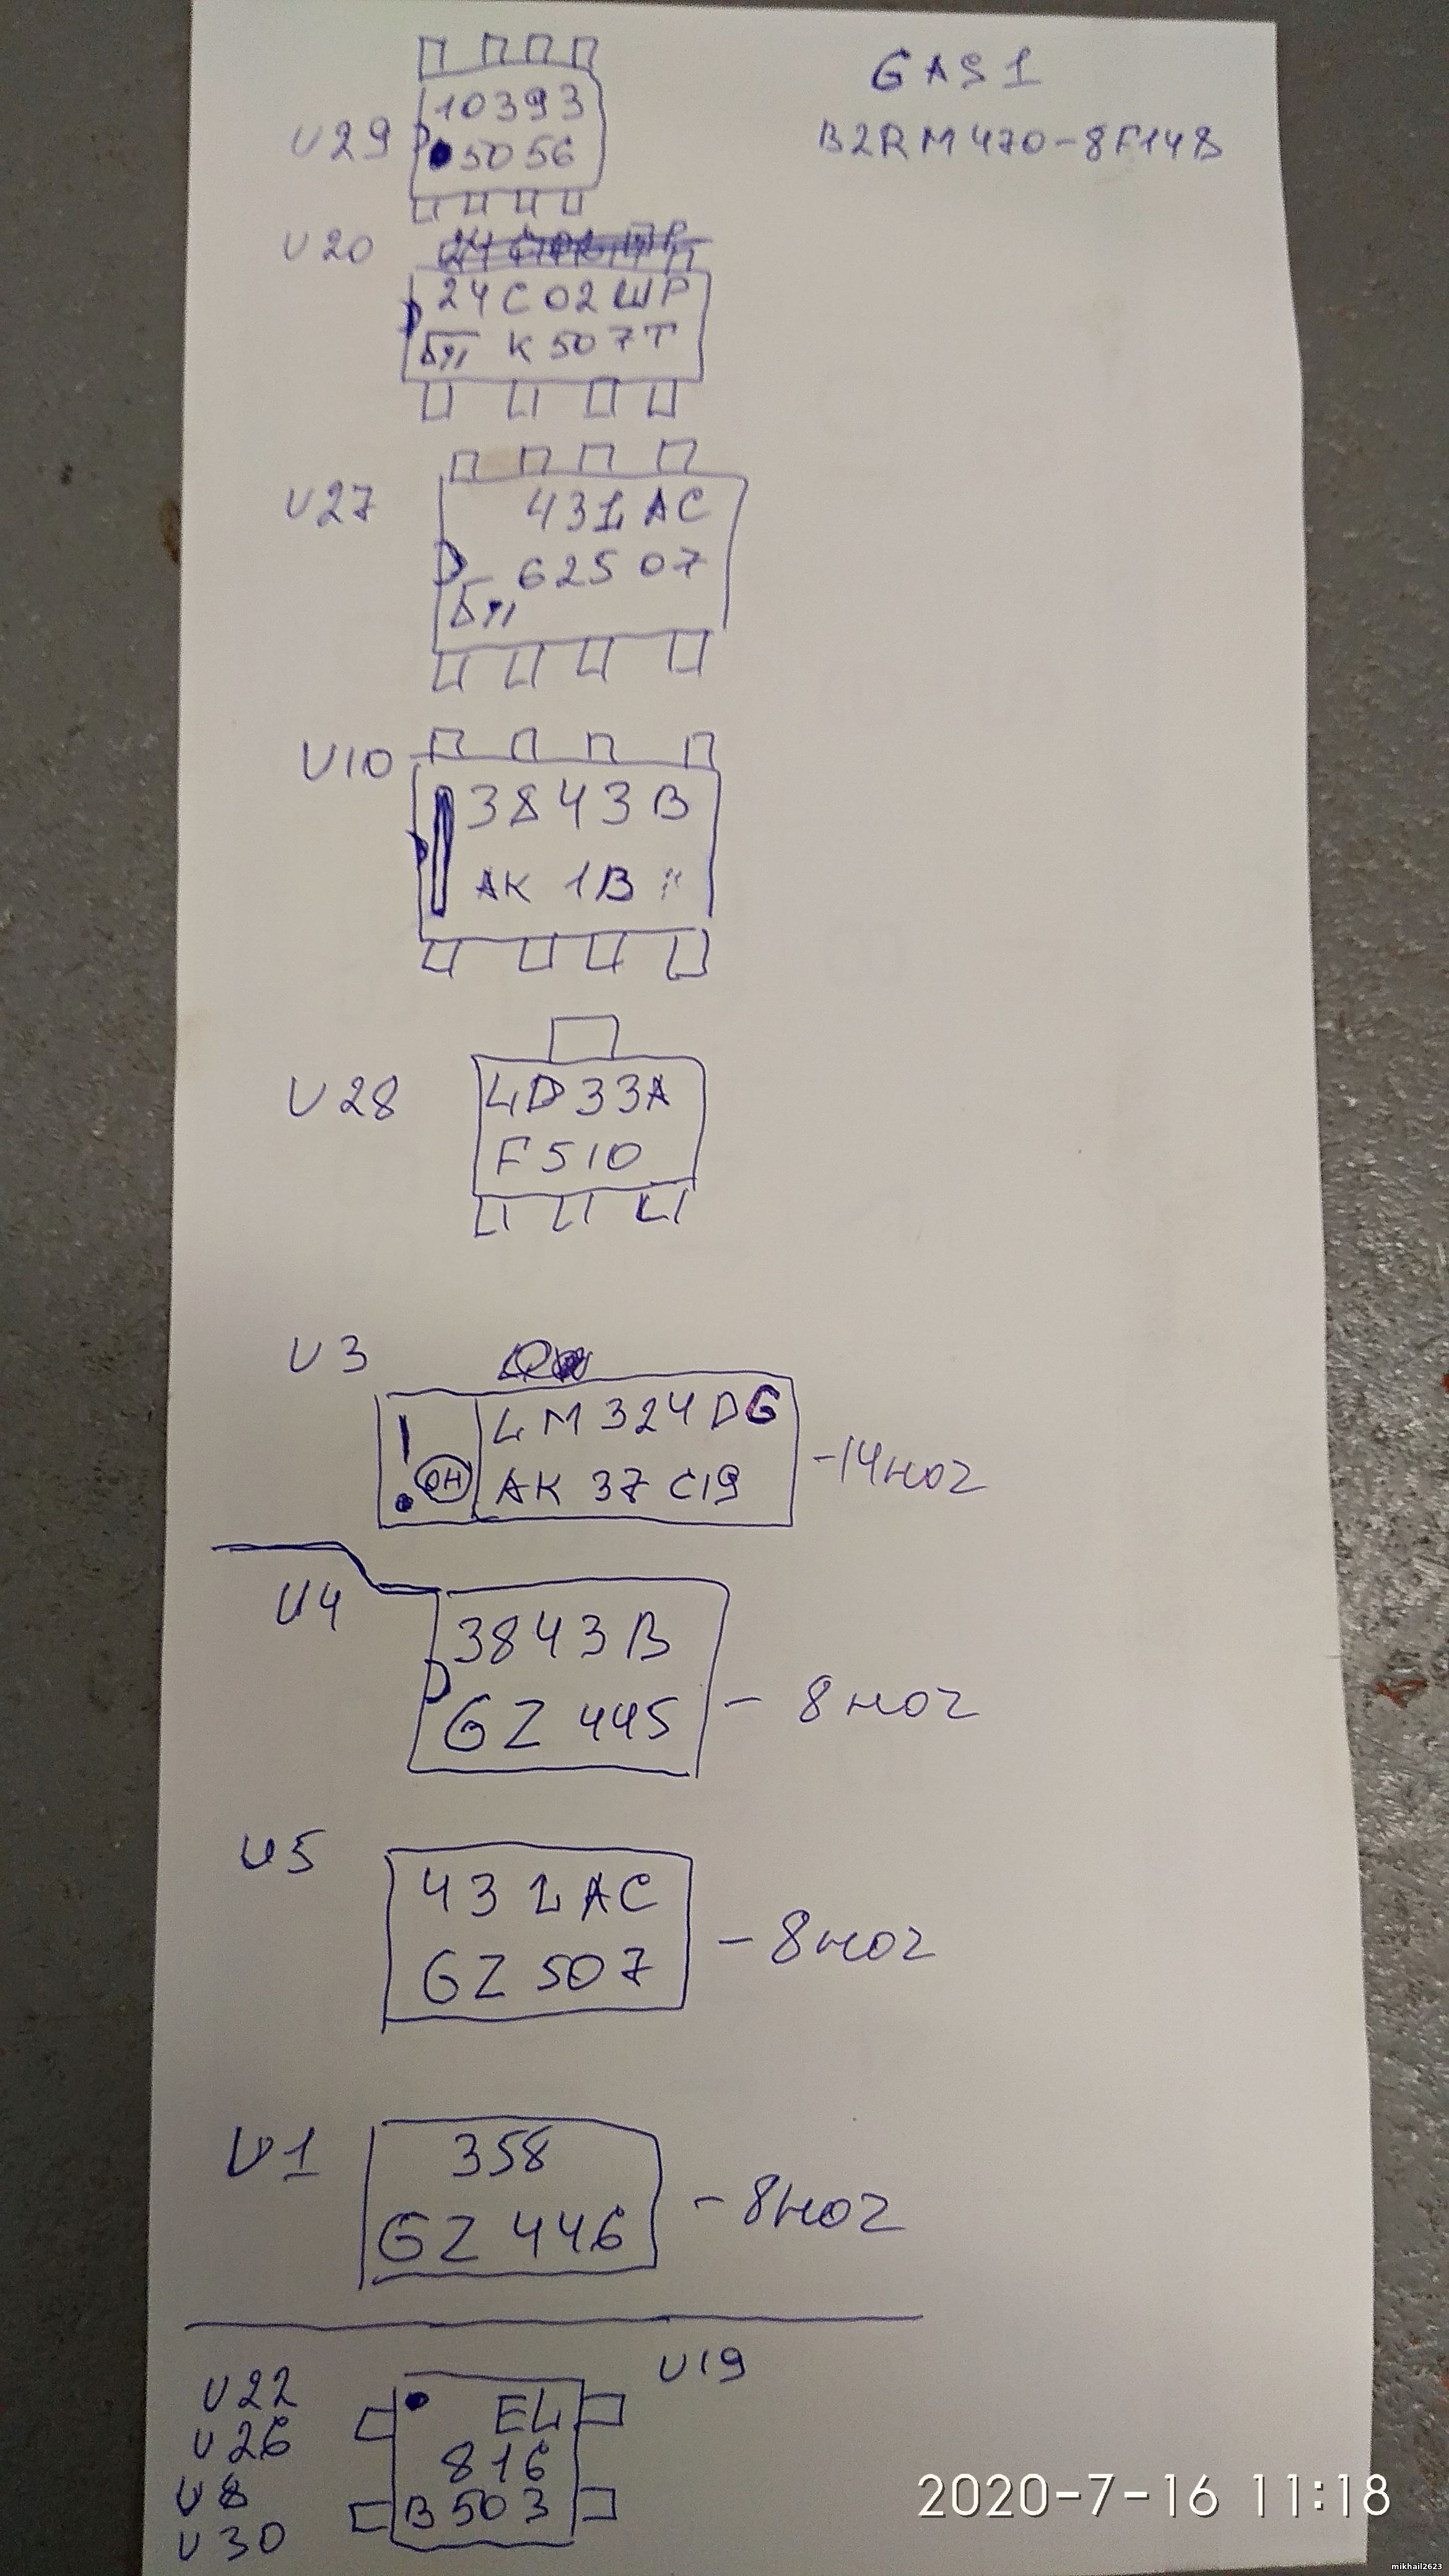 GAS1
B2RM470-8F14B
U29
10393
5056
U20
24C02WP
K507T
U27
431AC
62507
U10
3843B
AK 1B
U28
LD33A
F510
U3
LM324DG
ON AK 37 C19
-14 ног
U4
3843B
GZ 445
- 8 ног
U5
431AC
GZ 507
- 8 ног
U1
358
GZ 446
- 8 ног
U22
U26
U8
U30
EL
816
B503
U19
2020-7-16 11:18
mikhail2623